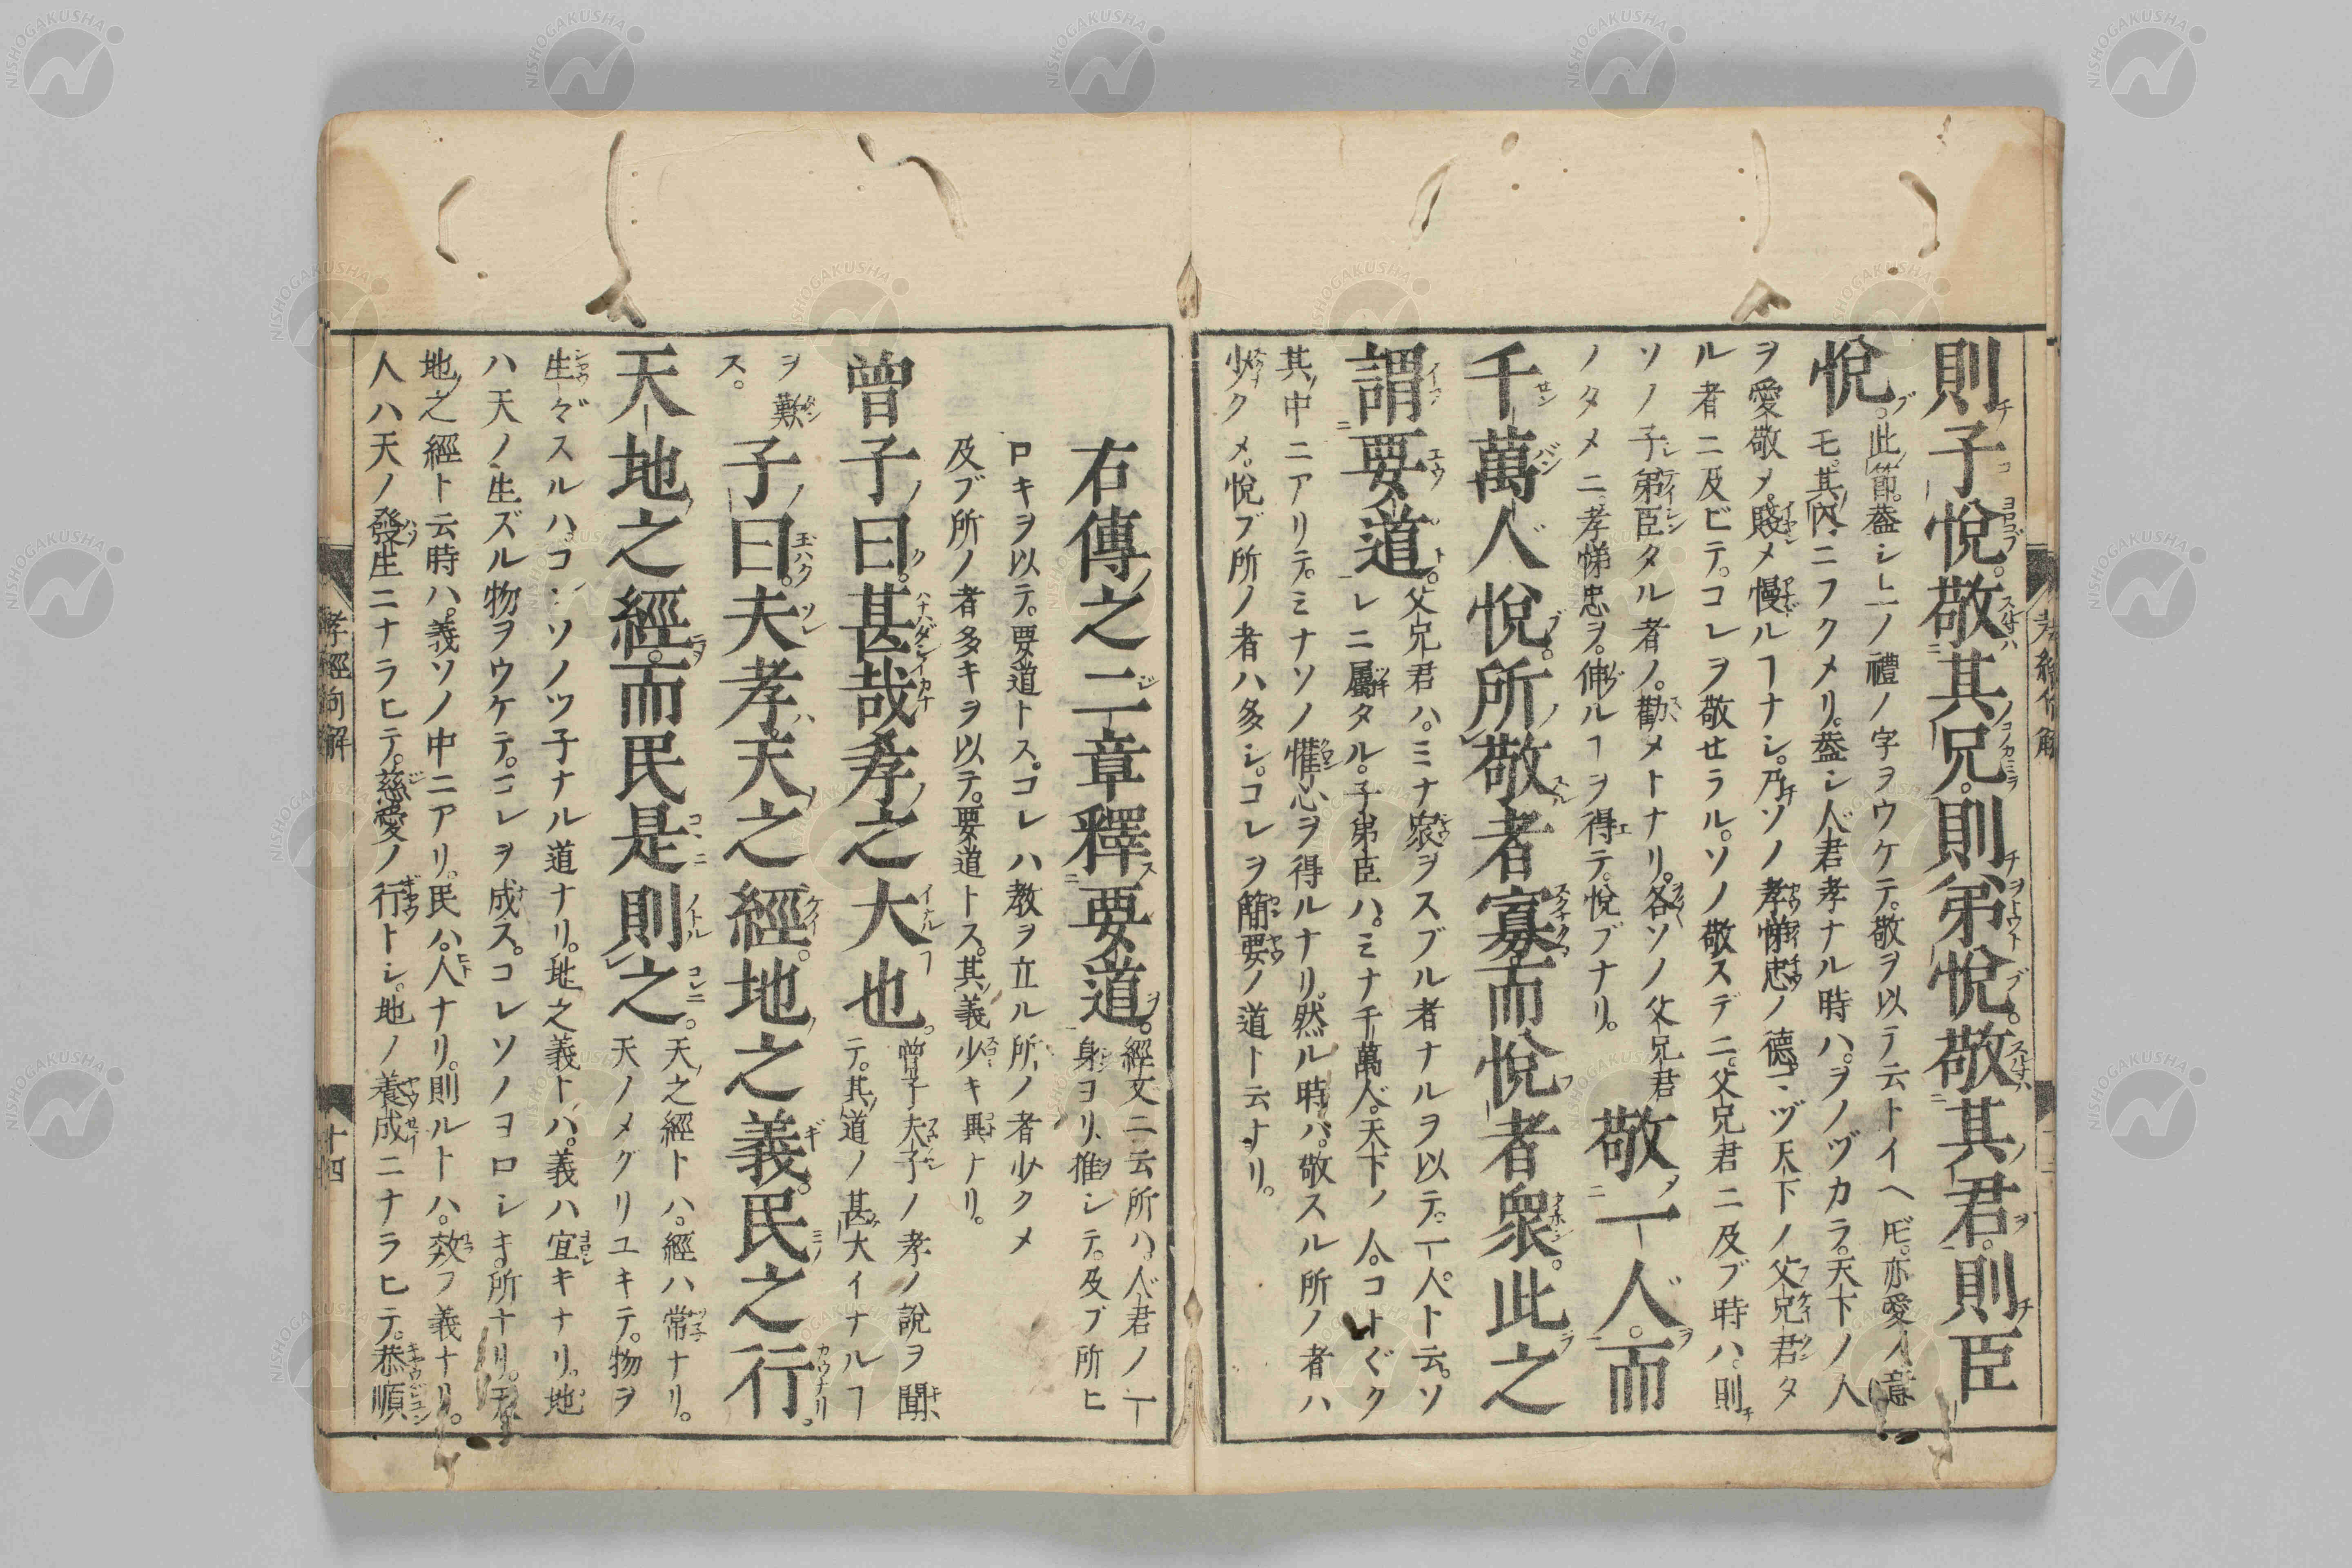 則子悅敬其兄則弟悅敬其君則臣
悅。此節蓋シ上ノ禮ノ字ヲウケテ。敬ヲ以テ云トイヘ𪜈。亦愛ノ意
モ。其內ニフクメリ。蓋シ人君孝ナル時ハ。ヲノヅカラ。天下ノ人
ヲ愛敬メ。賤メ慢ルヿナシ。乃ソノ孝悌忠ノ德。マヅ天下ノ父兄君タ
ル者ニ及ビテ。コレヲ敬せラル。ソノ敬スデニ。父兄君ニ及ブ時ハ。則
ソノ子弟臣タル者ノ。勸メトナリ。各ソノ父兄君
ノタメニ。孝悌忠ヲ。伸ルヿヲ得テ。悅ブナリ。
敬一人而
千萬人悅。所敬者寡而悅者衆。此之
謂要道。父兄君ハ。ミナ衆ヲスブル者ナルヲ以テ。一人ト云。ソ
レニ屬タル。子弟臣ハ。ミナ千萬人。天下ノ人。コトぐク
其中ニアリテ。ミナソノ懽心ヲ得ルナリ。然ル時ハ。敬スル所ノ者ハ
少クメ。悅ブ所ノ者ハ多シ。コレヲ簡要ノ道ト云ナリ。
右傳之二章釋要道。經文ニ云所ハ。人君ノ一
身ヨリ。推シテ。及ブ所ヒ
ロキヲ以テ。要道トス。コレハ教ヲ立ル所ノ者少クメ
及ブ所ノ者多キヲ以テ。要道トス。其義少キ異ナリ。
曾子曰。甚哉孝之大也。曾子夫子ノ孝ノ說ヲ聞
テ。其道ノ甚大イナルヿ
ヲ歎
ス。
子曰。夫孝天之經。地之義。民之行。
天地之經。而民是則之。天之經トハ。經ハ常ナリ。
天ノメグリユキテ。物ヲ
生ズルハ。コレソノツ子ナル道ナリ。地之義トハ。義ハ宜キナリ。地
ハ天ノ生ズル物ヲウケテ。コレヲ成ス。コレソノヨロシキ所ナリ。天
地之經ト云時ハ。義ソノ中ニアリ。民ハ。人ナリ。則ルトハ。效フ義ナリ。
人ハ天ノ發生ニナラヒテ。慈愛ノ行トシ。地ノ養成ニナラヒテ。恭順
孝經句解
十四